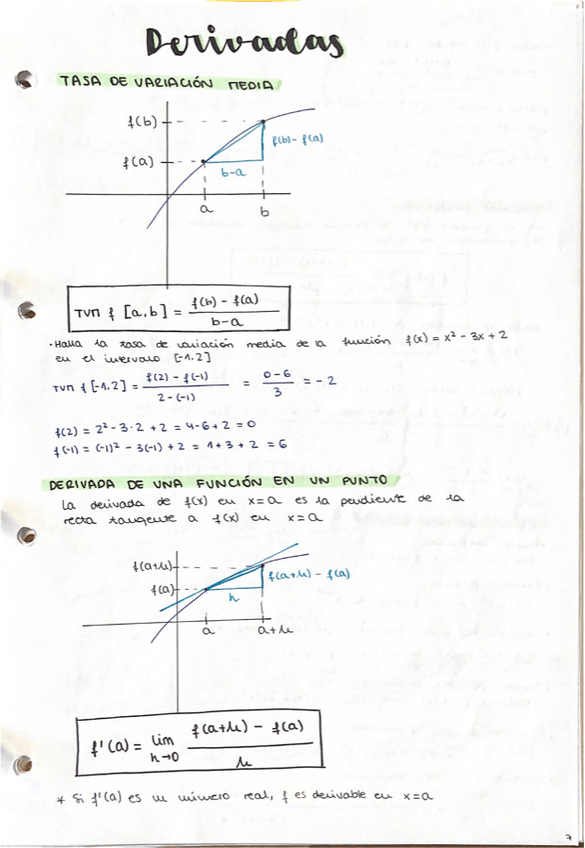 Derivadas
TASA DE VARIACIÓN MEDIA
f(b)
f(a)
f(b) - f(a)
b-a
a
b
TVM f [a,b] = \frac{f(b) - f(a)}{b-a}
·Halla la tasa de variación media de la función f(x) = x² - 3x + 2
en el intervalo [-1,2]
TVM f [-1,2] = \frac{f(2) - f(-1)}{2-(-1)} = \frac{0-6}{3} = -2
f(2) = 2² - 3·2 + 2 = 4-6+2 = 0
f(-1) = (-1)² - 3(-1) + 2 = 1+3+2 = 6
DERIVADA DE UNA FUNCIÓN EN UN PUNTO
La derivada de f(x) en x=a es la pendiente de la
recta tangente a f(x) en x=a
f(a+h)
f(a)
f(a+h) - f(a)
h
a
a+h
f'(a) = lim_{h→0} \frac{f(a+h) - f(a)}{h}
* Si f'(a) es un número real, f es derivable en x=a
7